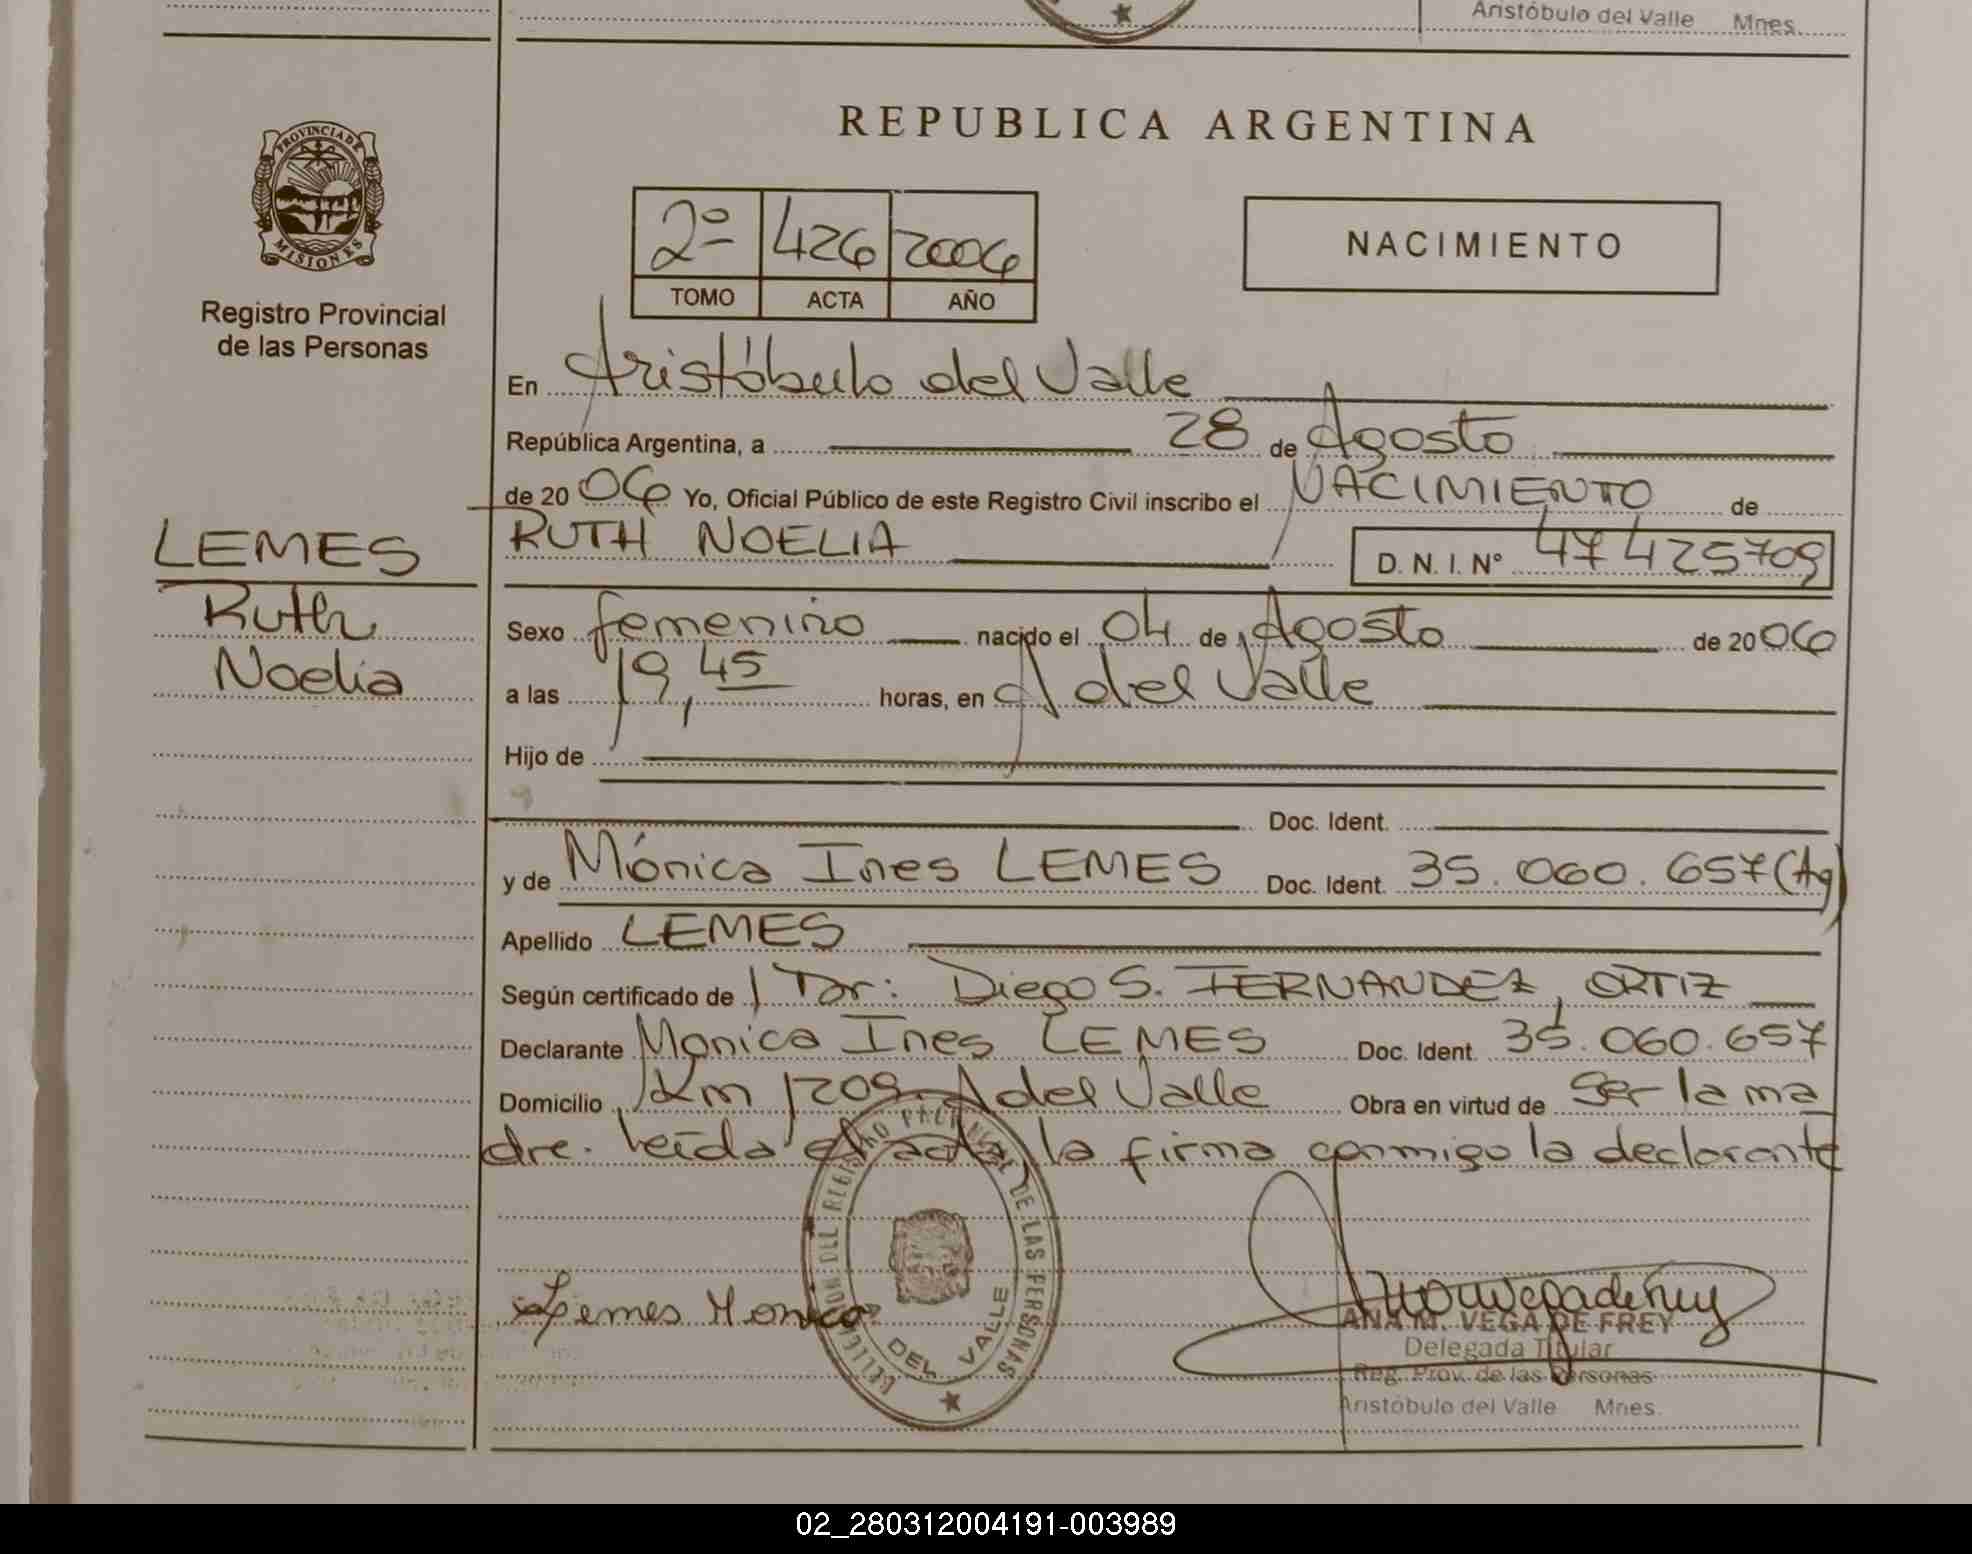 Aristóbulo del Valle Mnes.
REPUBLICA ARGENTINA
PROVINCIA DE
MISIONES
Registro Provincial
de las Personas
2º 426 2006
TOMO ACTA AÑO
NACIMIENTO
En Aristóbulo del Valle
República Argentina, a 28 de Agosto
de 2006 Yo, Oficial Público de este Registro Civil inscribo el NACIMIENTO de
RUTH NOELIA D. N. I. Nº 47425709
LEMES
Ruth
Noelia
Sexo femenino nacido el 04 de Agosto de 2006
a las 19,45 horas, en A del Valle
Hijo de
Doc. Ident.
y de Mónica Ines LEMES Doc. Ident. 35.060.657 (Ag)
Apellido LEMES
Según certificado de Dr: Diego S. FERNANDEZ, ORTIZ
Declarante Monica Ines LEMES Doc. Ident. 35.060.657
Domicilio Km 1209 A del Valle Obra en virtud de Ser la ma
dre. leída el acta la firma conmigo la declarante
DEL REGISTRO PROVINCIAL DE LAS PERSONAS
DEL VALLE
Lemes Monica
ANA M. VEGA DE FREY
Delegada Titular
Reg. Prov. de las Personas
Aristóbulo del Valle Mnes.
02_280312004191-003989